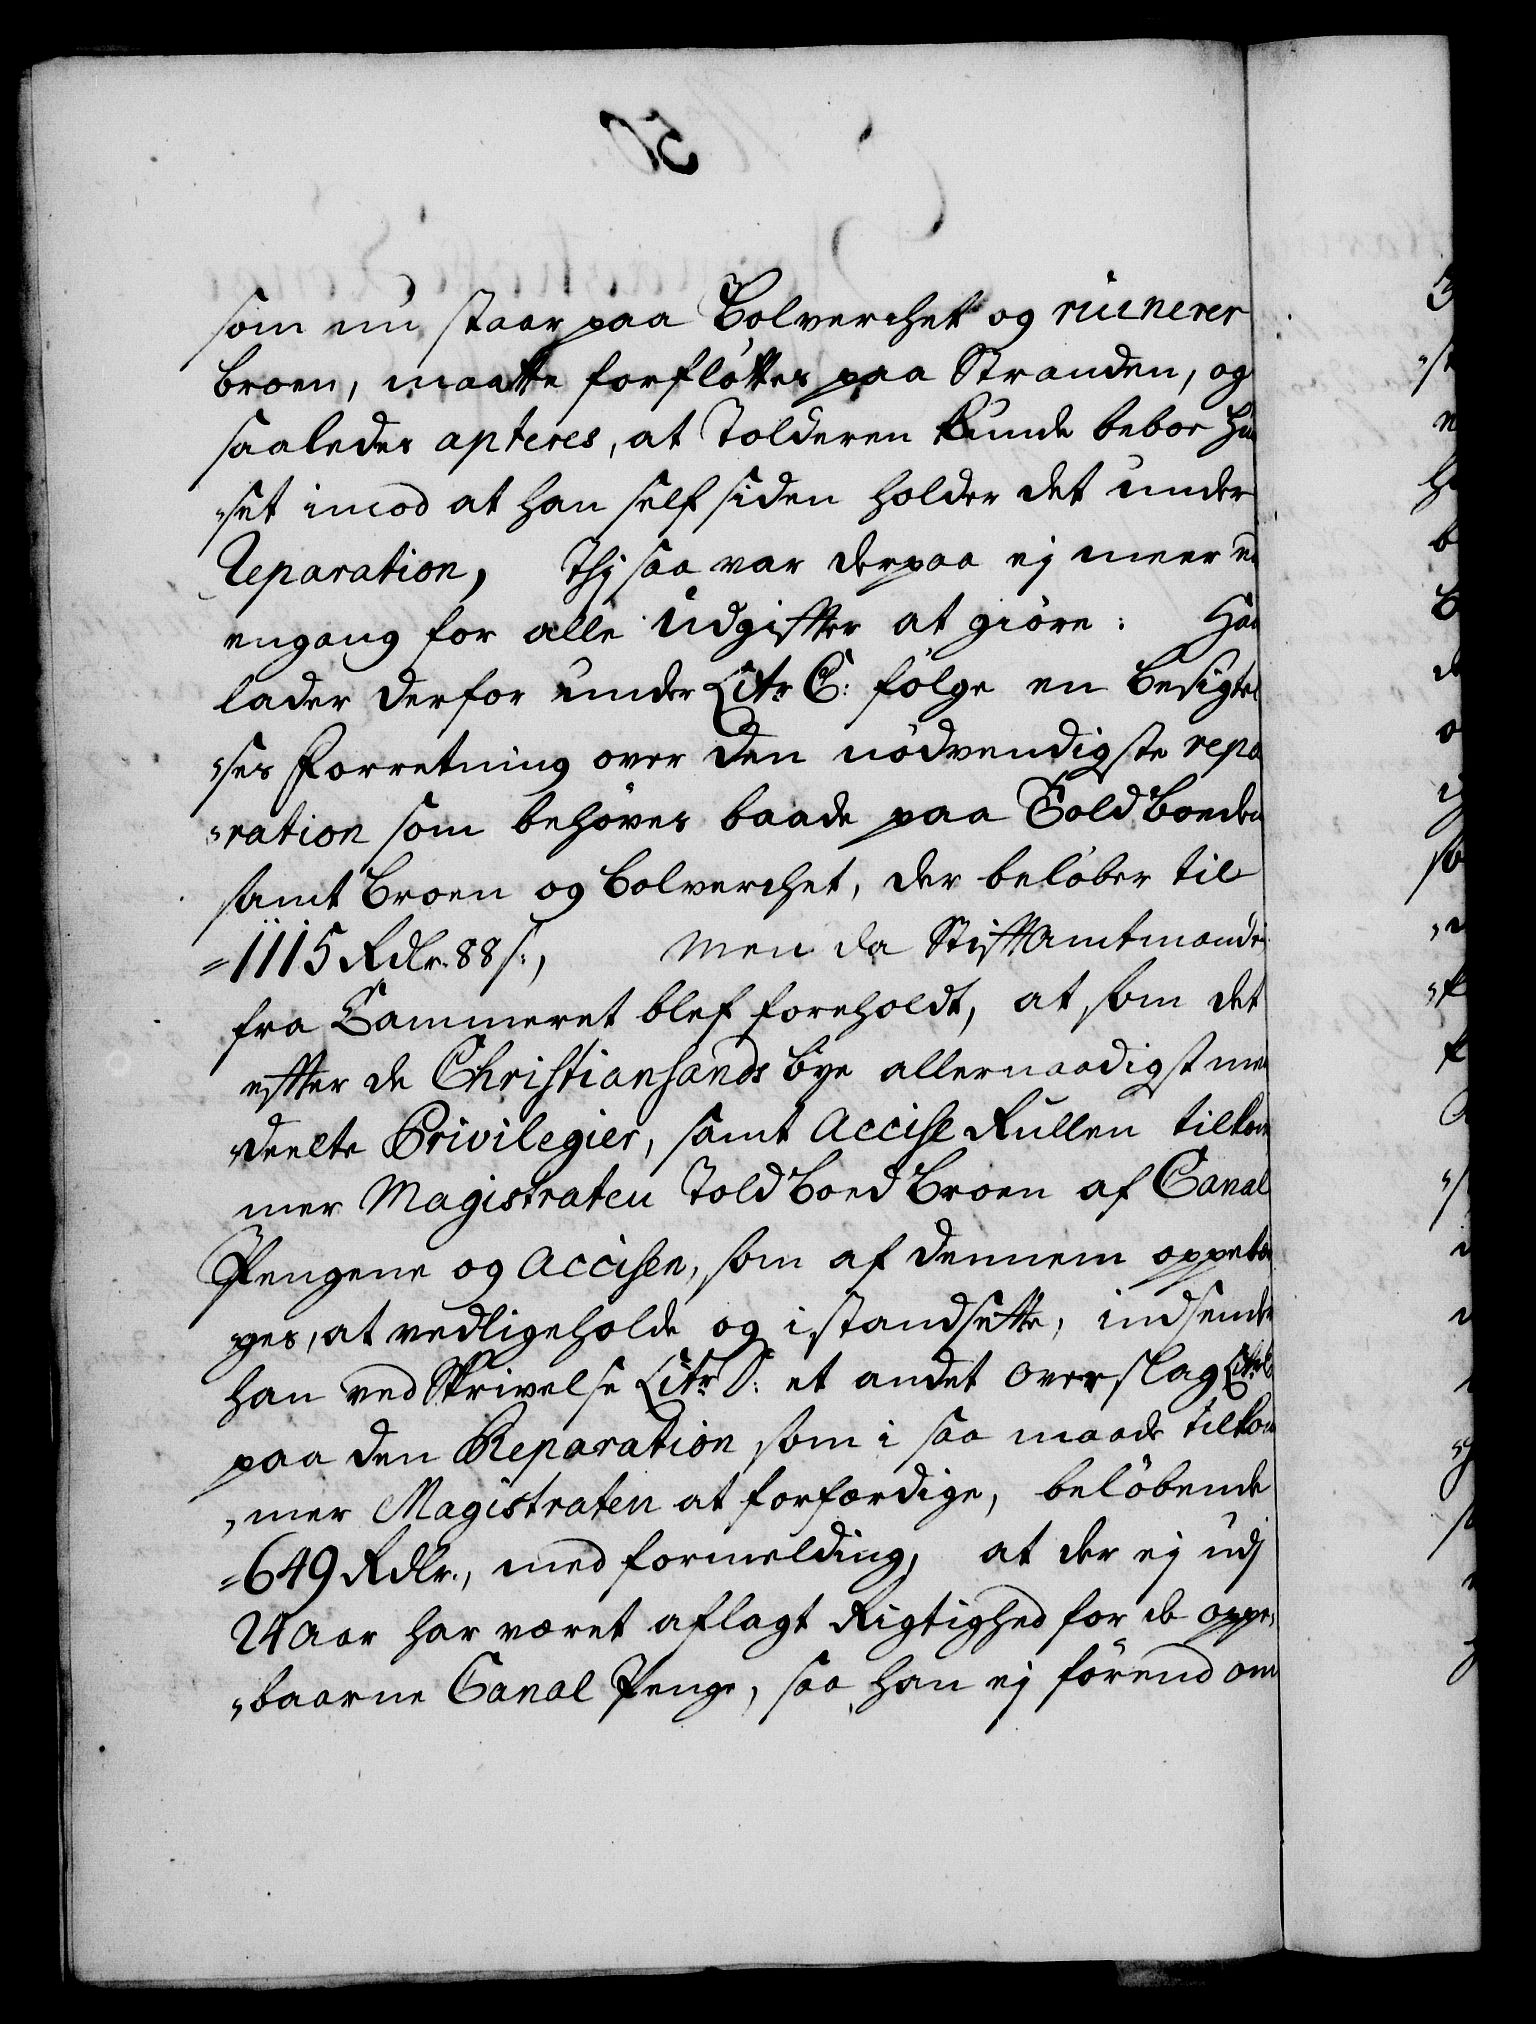 som nu staar paa Bolverchet og ruinerer
broen, maatte forfløttes paa Stranden, og
saaledes apteres, at Tolderen kunde beboe Huu
"set imod at han self siden holder det under
Reparation, Thj saa var derpaa ej meer en
engang for alle Udgifter at giøre: Han
lader derfor under Litr C: følge en besigtel
"ses Forretning over den nødvendigste repa
"ration som behøves baade paa Toldboeden
samt broen og bolverchet, der beløber til
=1115 Rdlr. 88 s:, Men da Stiftamtmanden
fra Cammeret blef foreholdt, at som det
efter de Christiansands bye allernaadigst med
deelte Privilegier, samt Accise Rullen tilkom
mer Magistraten Toldboed broen af Canal
Pengene og Accisen, som af dennem oppebær
ges, at vedligeholde og istandsette, indsender
han ved Skrivelse Litr D: et andet Overslag Litr
paa den Reparation som i saa maade tilkom
"mer Magistraten at forfærdige, beløbende
=649 Rdlr., med formelding, at der ej udj
24 Aar har været aflagt Rigtighed for de oppe,
"baarne Canal Penge, saa han ej førend om